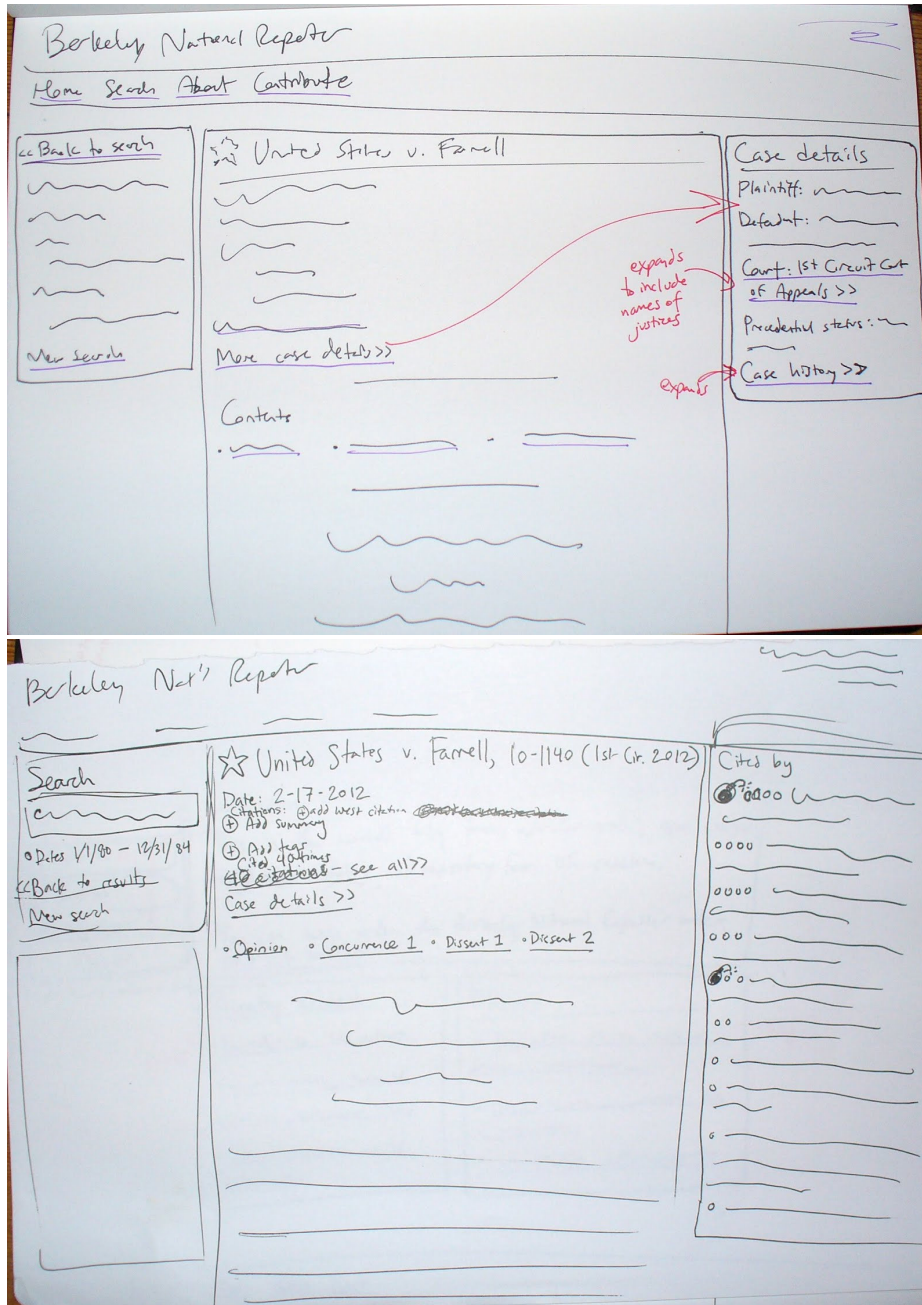 Berkeley National Reporter
Home Search About Contribute
<< Back to search
New search
United States v. Farrell
More case details >>
Contents
expands
to include
names of
justices
expands
Case details
Plaintiff:
Defendant:
Court: 1st Circuit Court
of Appeals >>
Precedential status:
Case history >>
Berkeley Nat'l Reporter
Search
Dates 1/1/80 - 12/31/84
<< Back to results
New search
United States v. Farrell, 10-1140 (1st Cir. 2012)
Date: 2-17-2012
Citations: + add West citation
+ Add summary
+ Add tags
Cited 40 times
- see all >>
Case details >>
Opinion • Concurrence 1 • Dissent 1 • Dissent 2
Cited by